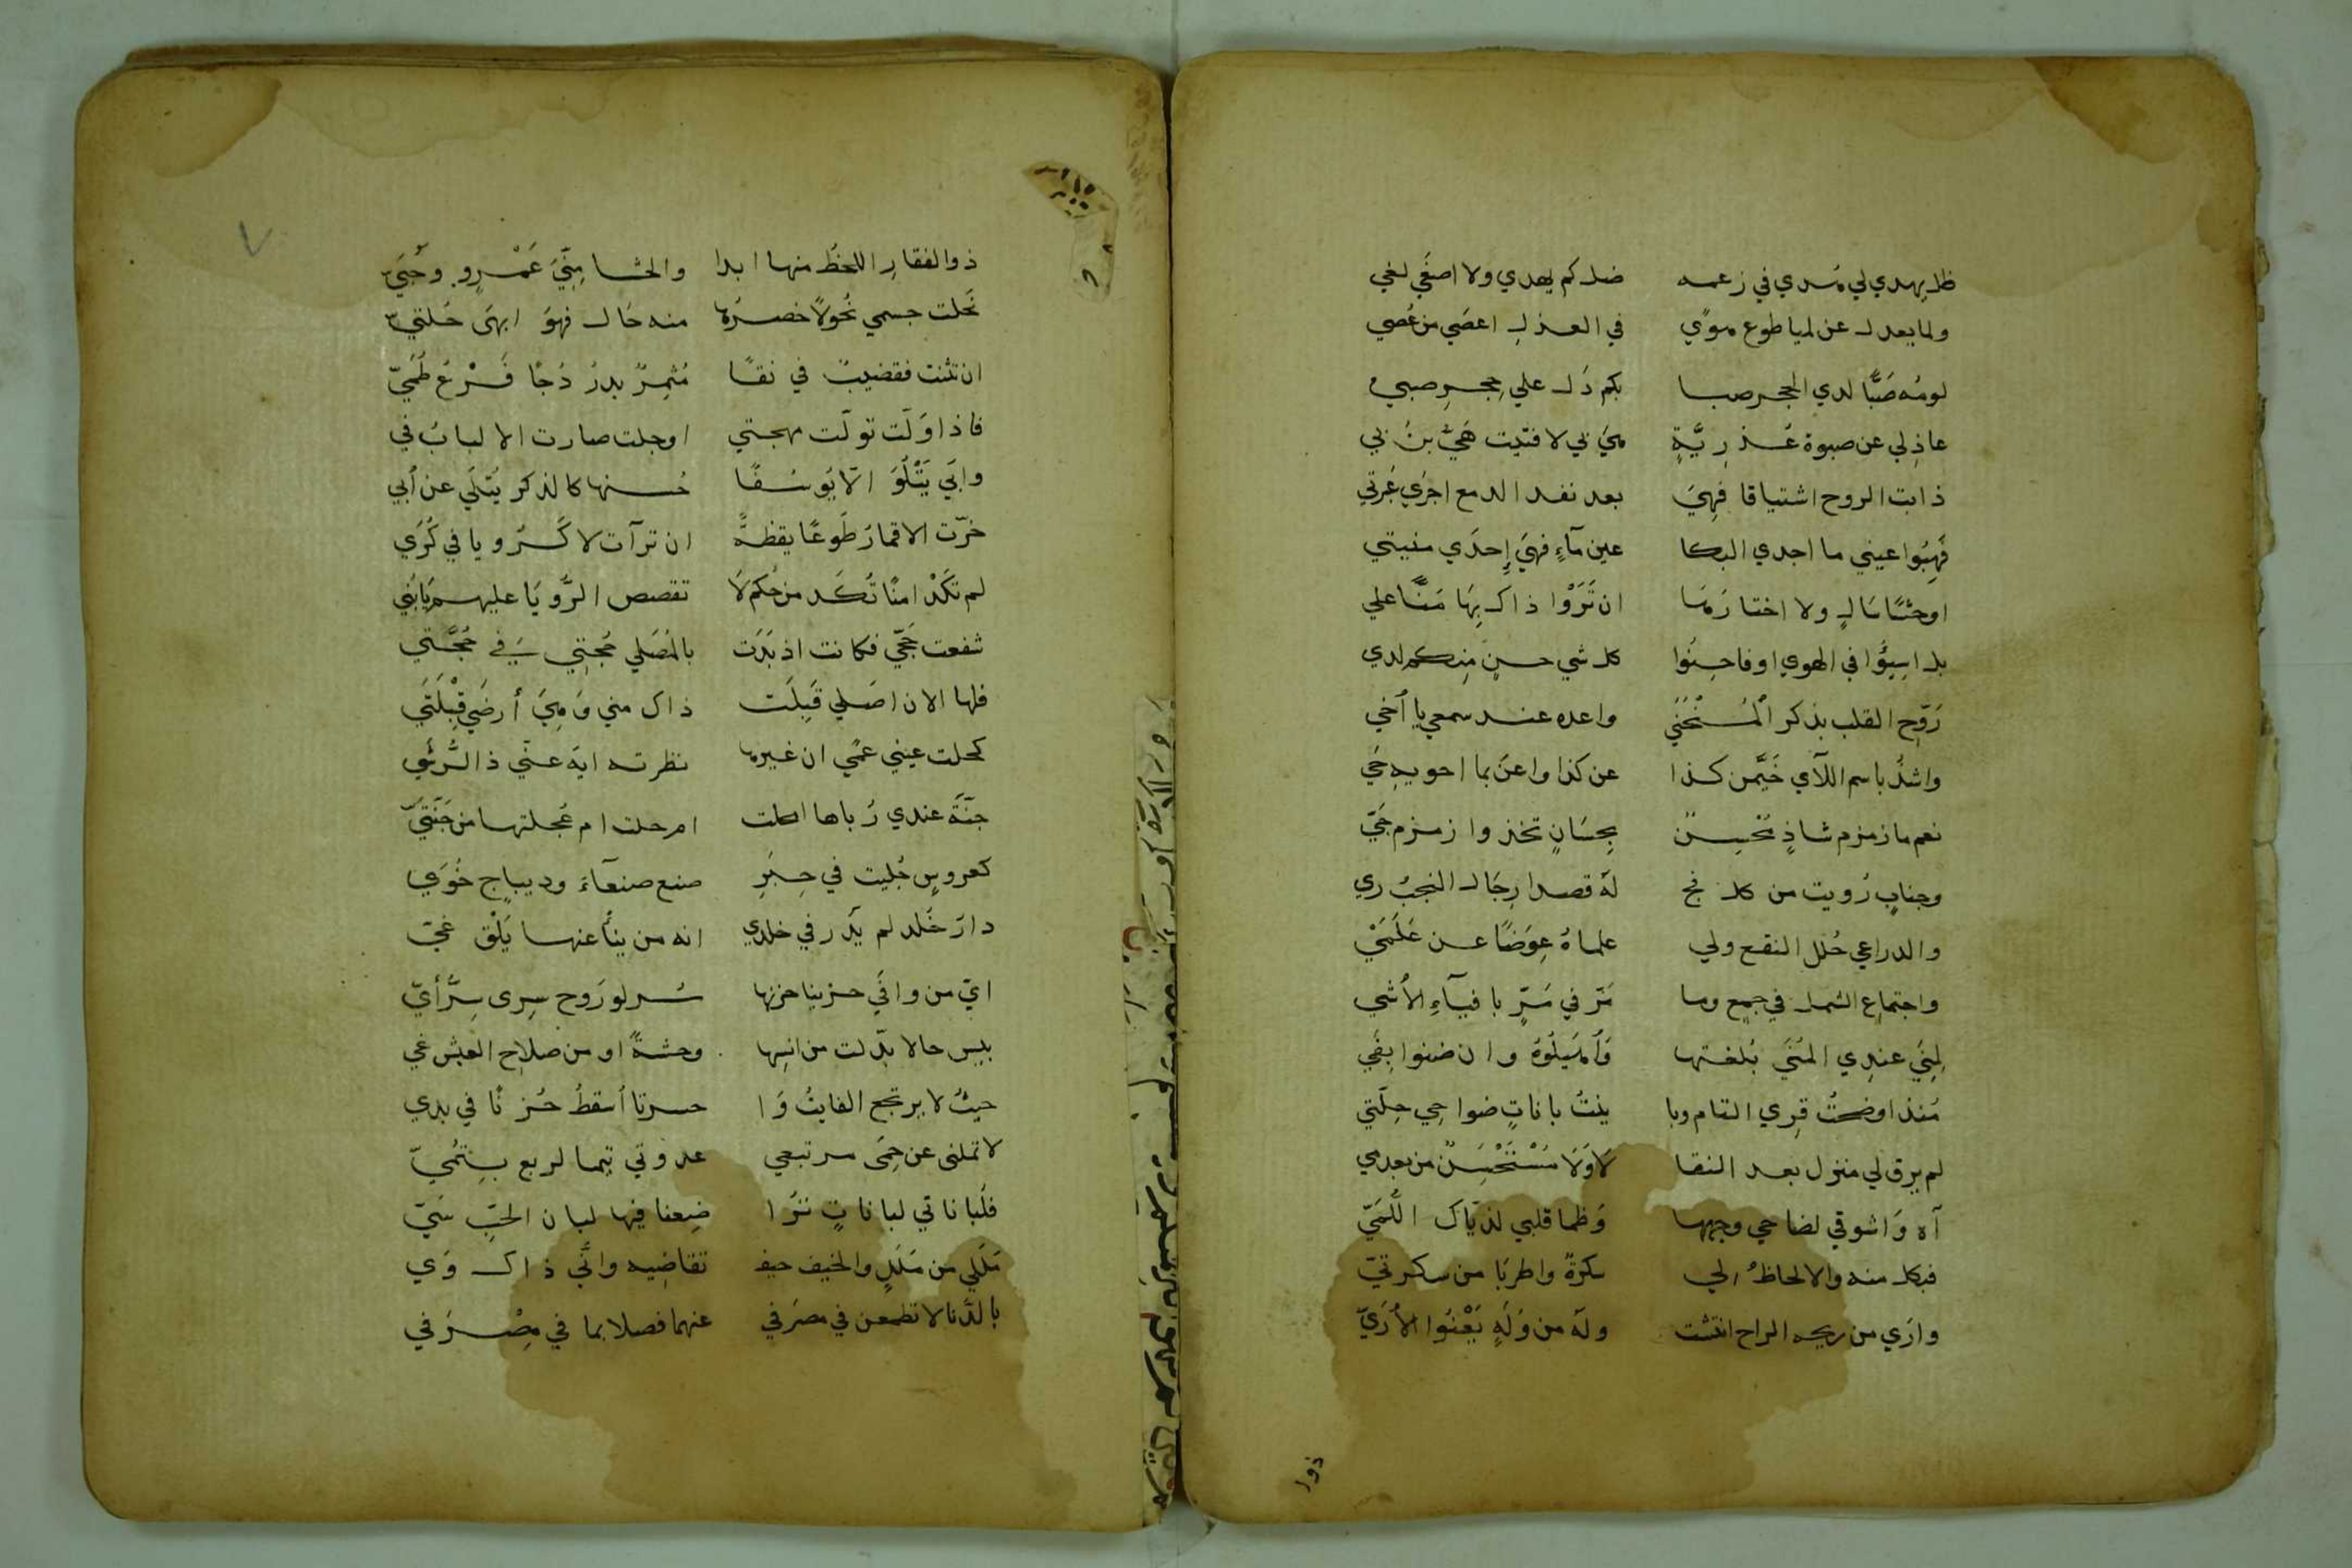 ظل يهدي لي هدي في زعمه ضل كم يهدي ولا اصغي لغي
ولما يعدل عن لميا طوع هوًي في العذلِ اعصَي من عُصي
لومُه صَبًّا لدي الحجر صبا بكم دَل علي حِجرِ صبي
عاذِلي عن صبوة عُذرِيَّةٍ هيَ بي لا فتيت هَيُّ بنُ بي
ذابت الروح اشتياقا فهِيَ بعد نفد الدمع اجرَي عَبرتي
فَهِبُوا عيني ما اجدي البكا عين مآءٍ فهيَ إِحدَي منيتي
اوحشًا سَالٍ ولا اختارَها ان تَرَوْا ذاك بِهَا مَنًّا علي
بل اسِيؤُا في الهوي او فاحسِنُوا كل شي حسن مِنكم لدي
رَوِّحِ القلب بذكر اُلمُنْحَنَي واعده عند سمعي يا اُخَي
واشدُ باسم اللآي خَيَّمن كذا عن كذا واعنَ بما احويه حَي
نعم ما زمزم شادٍ مُحْسِنٌ بِحِسَانٍ تخذوا زمزم جَيّ
وجنابٍ زُويت من كل فج لَهُ قصدا رِجَال النجبُ زي
والدراعي حُلل النقع ولي علماهُ عِوَضًا عن عَلَمَيْ
واجتماعِ الشمل في جمع وما مَرّ في مَرٍّ بافيآءِ الأُشي
لمِنَي عندِي المُنَي بُلغتها وَأُهَيلُوهُ وان ضنوا بِفَي
مُنذ اوضحتُ قرِي الشام وبا ينتُ باناتٍ ضواحي حِلّتي
لم يرق لي منزل بعد النقا لَا وَلَا مُسْتَحْسَنٌ من بعد مي
آه وَاشوقي لضاحي وجهها وَظما قلبي لذيّاك اللُّمَيّ
فبكل منه والالحاظُ لي سكرةً واطربَا من سكرتيّ
وارَي من ريحه الراح انتشت ولهُ من وَلَهٍ يَعْنُوا الأُرَيّ
ذوا
ذوالفقارِ اللحظُ منها ابدا والحشا مِنّيَ عَمْرٍو وحُيَيّ
نَحلت جسمي نُحولاً خصرُها منه حَال فهوَ ابهَي حُلتيّ
ان تثنت فقضيبٌ في نقًا مُثمِرٌ بدرُ دُجًا فَرْعُ ظُمَيّ
فاذا وَلّت تولّت مهجتي او تجلت صارت الالبابُ في
وابَي يَتْلُوَ الّا يُوسُفًا حُسنها كالذكر يُتلَي عن اُبي
خرّت الاقمارُ طَوعًا يقظةً ان ترآت لا كَرُويا في كُرَي
لم تكَدْ امنًا تُكَد من حُكم لَا تقصص الرُّويَا عليهم يَابُنَي
شفعت حَجّي فكانت اذ بَدَت بالمُصَلي حُجتِي في حَجَّتي
فلها الان اصَلي قَبِلَت ذاك مني وَهِيَ أرضَي قِبْلَتَي
كحلت عيني عمًي ان غيرها نظرته ايهَ عنّي ذا الرُّشَي
جنّةَ عندي رُباها امحلت ام حلت ام عُجلتها من جَنّتيّ
كعروسٍ جُليت في حِبَرٍ صنع صنعآءَ وديباجِ خُوَي
دارَ خُلد لم يَدُر في خلدي انه من ينأُ عنها يَلْقَ غيّ
ايّ من وافَي حزينا حزنها سُر لو رَوح سِرى سِرُّ أيّ
بيس حالا بدّلت من انسِها وحشةً او من صلاحِ العيش غي
حيثُ لا يرتجع الفايتُ وَا حسرتا اُسقطُ حُزنًا في يدي
لا تملني عن حِمَى مرتبعي عدوتي تيما لربع بِتُمَيّ
فلُباناتي لباناتٍ تَرُا ضِعنا فيها لبان الحبِّ سَيّ
مَلَلي من مَلَلٍ والخيف حيف تقاضِيه وانّي ذاك وَي
بالدُّنا لا تطمعن في مصرَفي عنهما فصلا بما في مِصْرَ في